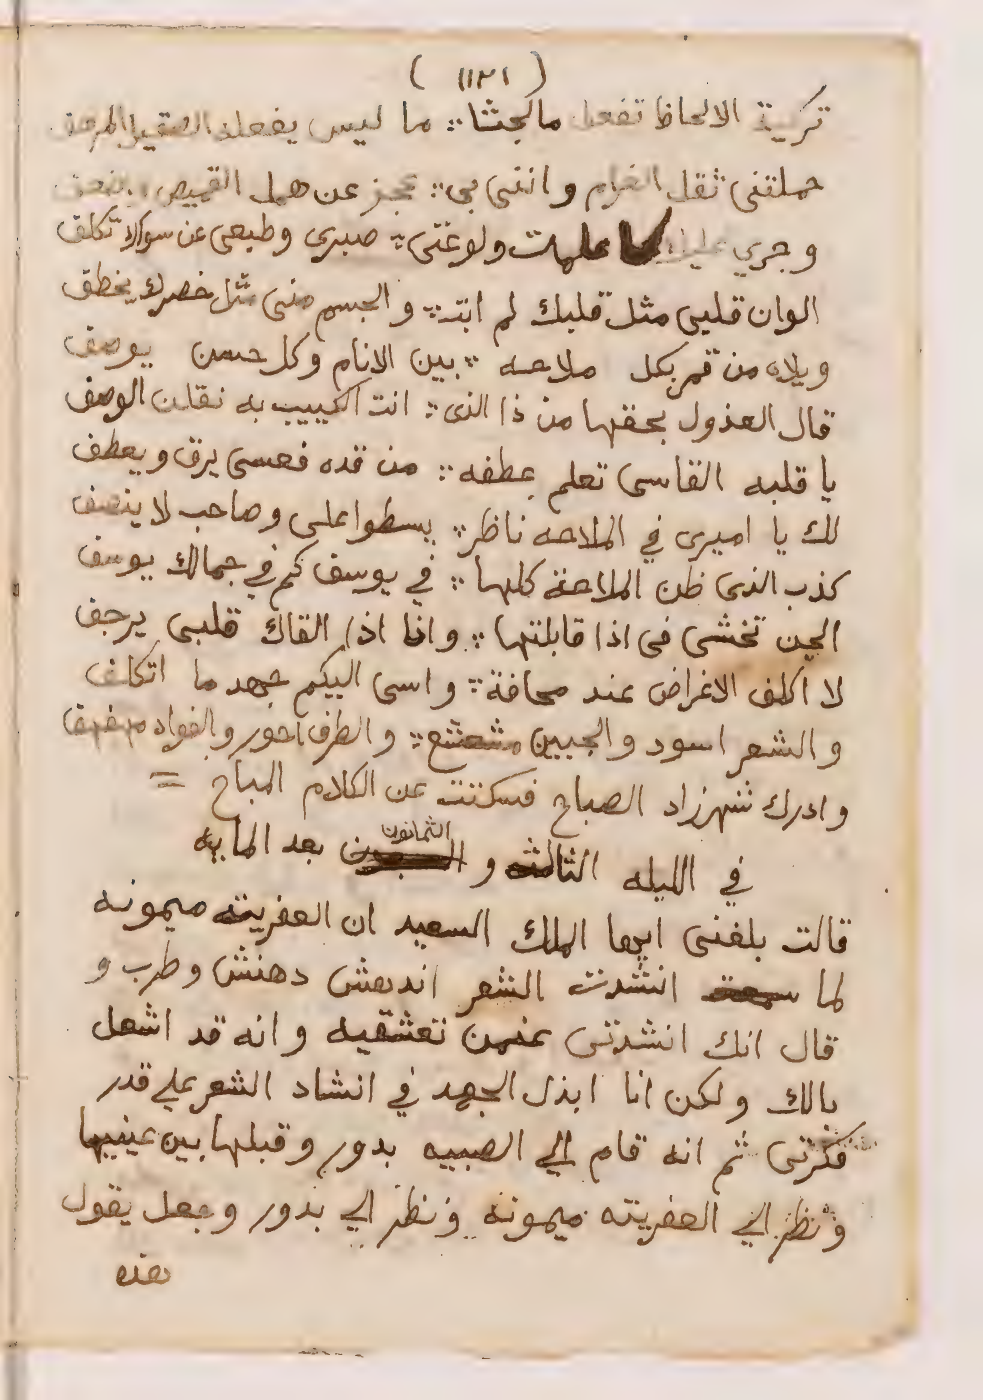 ( ١١٣١ )
تركية الالحاظ تفعل مالجشا ؞ ما ليس يفعله الصقيل المرهف
حملتنى ثقل الغرام وانني بي ؞ عجز عن همل القميص واضعف
و جري عليك علمت ولوعتى ؞ صبرى وطبعى عن سواك تكلف
الوان قلبى مثل قلبك لم ابت ؞ والجسم منى مثل خصرك يخطف
ويلاه من قمر بكل ملاحه ؞ بين الانام وكل حسن يوصف
قال العذول بحقها من ذا الذى ؞ انت الكييب به نقلت الوصف
يا قلبه القاسى تعلم عطفه ؞ من قده فعسى يرق ويعطف
لك يا اميرى في الملاحه ناظر ؞ يسطوا على وصاحب لا ينصف
كذب الذى ظن الملاحة كلها ؞ في يوسف كم في جمالك يوسف
الجن تخشى فى اذا قابلتها ؞ وانا اذا القاك قلبى يرجف
لا اكلف الاغراض عند محافة ؞ واسى اليكم جهد ما اتكلف
والشعر اسود والجبين مشعشع ؞ والطرف احور والفواد مهفهف
وادرك شهرزاد الصباح فسكتت عن الكلام المباح =
في الليله الثالثه و الثمانون بعد المايه
قالت بلغنى ايها الملك السعيد ان العفريته ميمونه
لما سمعت انشدت الشعر اندهش دهنش وطرب و
قال انك انشدتى عنمن تعشقيه وانه قد اشعل
بالك ولكن انا ابذل الجهد في انشاد الشعر على قدر
فكرتى ثم انه قام الي الصبيه بدور وقبلها بين عينيها
ونظر الي العفريته ميمونه ونظر الي بدور وجعل يقول
هذه